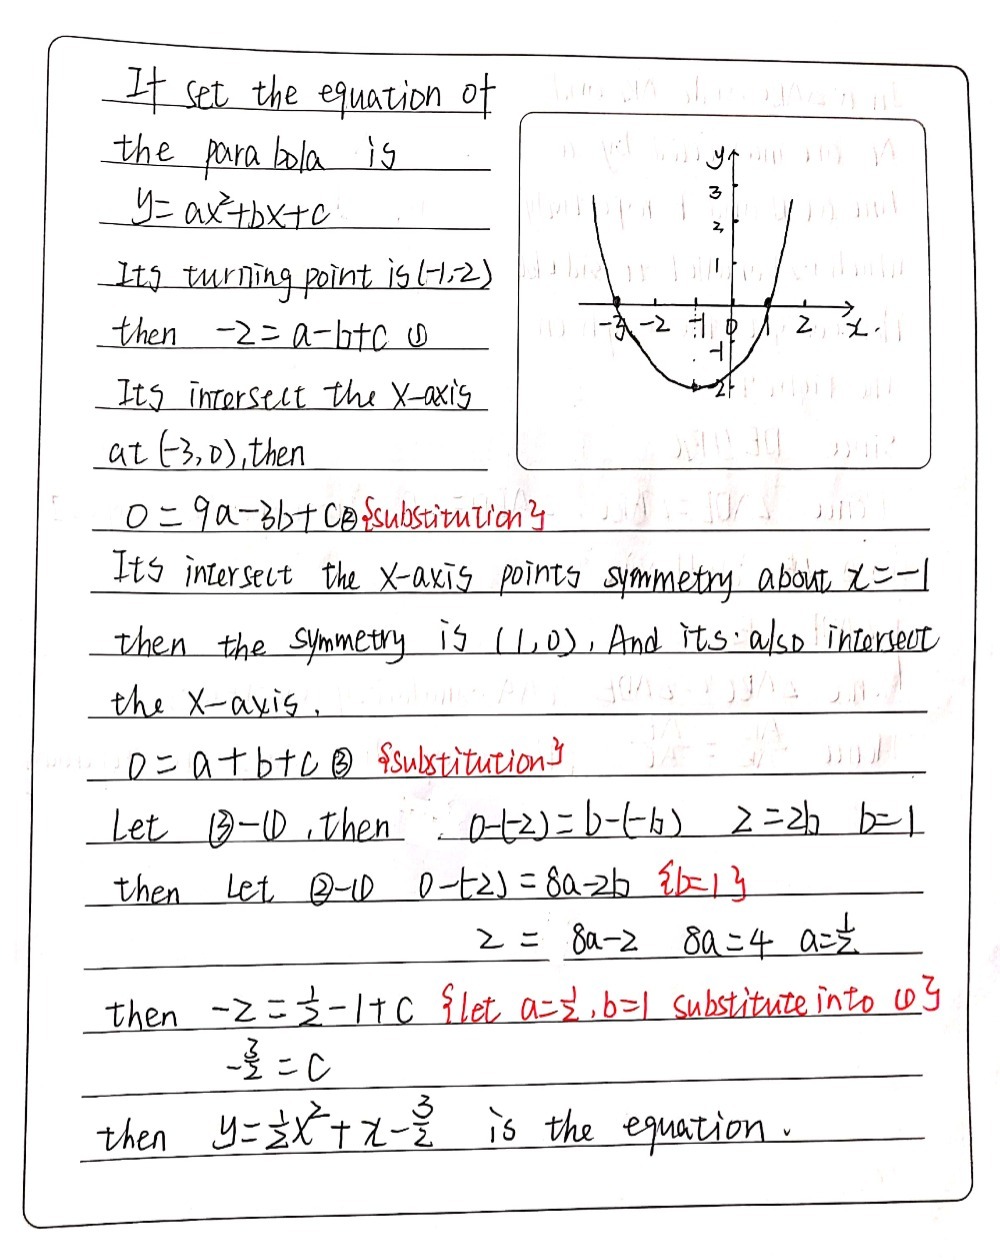 If set the equation of
the parabola is
y=ax²+bx+c
Its turning point is (-1,-2)
then -2=a-b+c ①
Its intersect the x-axis
at (-3,0), then
0=9a-3b+c② {substitution}
Its intersect the x-axis points symmetry about x=-1
then the symmetry is (1,0). And its also intersect
the x-axis.
0=a+b+c ③ {substitution}
Let ③-①, then 0-(-2)=b-(-b) 2=2b b=1
then Let ②-① 0-(-2)=8a-2b {b=1}
2 = 8a-2 8a=4 a=½
then -2=½-1+c {let a=½, b=1 substitute into ①}
-3/2=c
then y=½x²+x-3/2 is the equation.
y
3
2
1
-3 -2 -1 0 1 2 x.
-1
-2